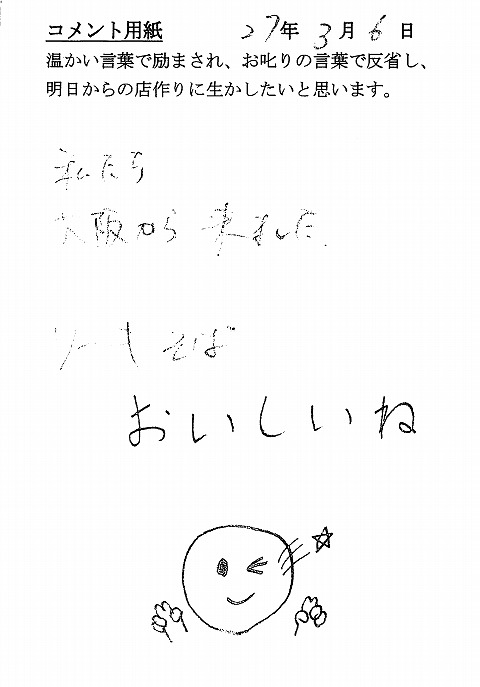 コメント用紙 27年3月6日
温かい言葉で励まされ、お叱りの言葉で反省し、
明日からの店作りに生かしたいと思います。
私たち
大阪から来ました。
ソーキそば
おいしいね